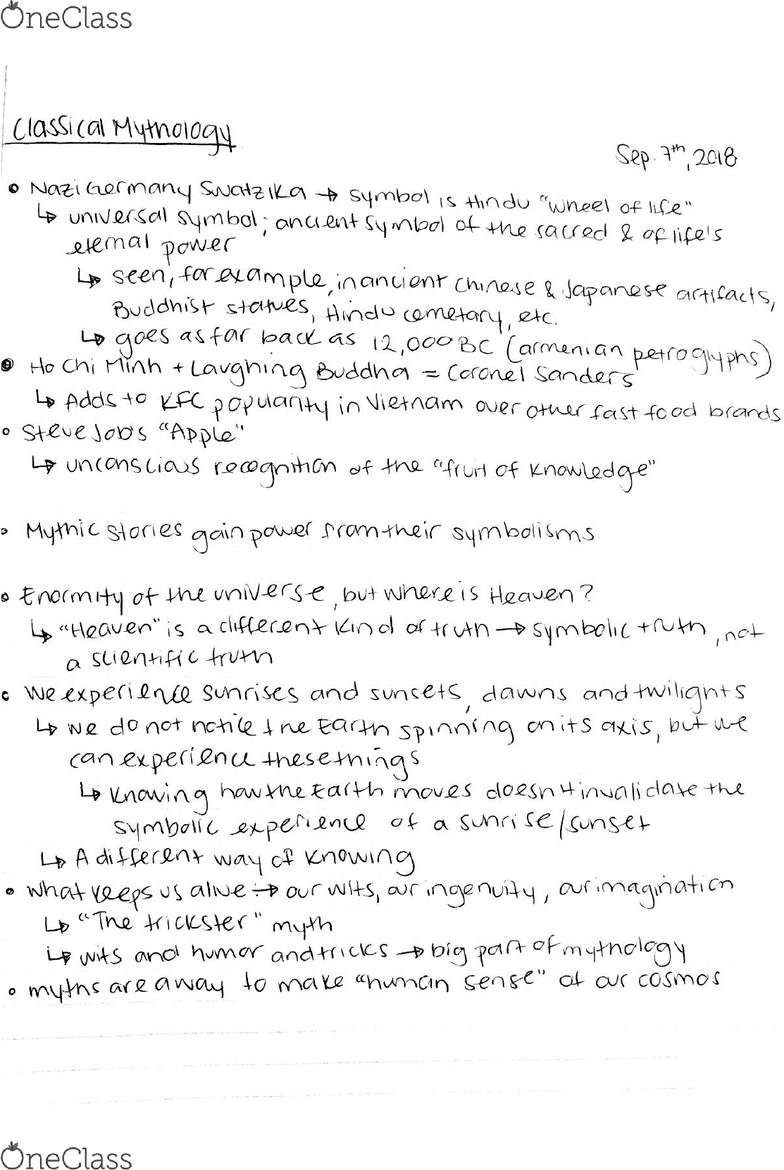 OneClass
Classical Mythology
Sep. 7th, 2018
Nazi Germany Swatzika → symbol is Hindu "wheel of life"
↳ universal symbol; ancient symbol of the sacred & of life's
eternal power
↳ seen, for example, in ancient Chinese & Japanese artifacts,
Buddhist statues, Hindu cemetary, etc.
↳ goes as far back as 12,000 BC (armenian petroglyphs)
Ho Chi Minh + Laughing Buddha = Coronel Sanders
↳ Adds to KFC popularity in Vietnam over other fast food brands
Steve Job's "Apple"
↳ unconscious recognition of the "fruit of knowledge"
Mythic stories gain power from their symbolisms
Enormity of the universe, but where is Heaven?
↳ "Heaven" is a different kind of truth → symbolic truth, not
a scientific truth
we experience sunrises and sunsets, dawns and twilights
↳ we do not notice the Earth spinning on its axis, but we
can experience these things
↳ Knowing how the Earth moves doesn't invalidate the
symbolic experience of a sunrise/sunset
↳ A different way of knowing
what keeps us alive → our wits, our ingenuity, our imagination
↳ "The trickster" myth
↳ wits and humor and tricks → big part of mythology
myths are a way to make "human sense" of our cosmos
OneClass